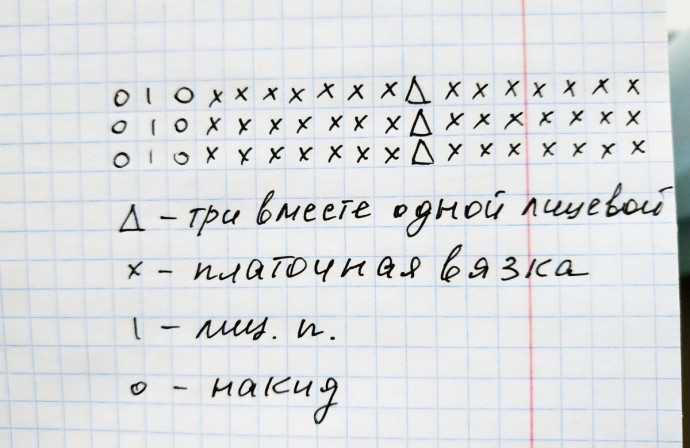 o | o x x x x x x x Δ x x x x x x x
o | o x x x x x x x Δ x x x x x x x
o | o x x x x x x x Δ x x x x x x x
Δ – три вместе одной лицевой
x – платочная вязка
| – лиц. п.
o – накид